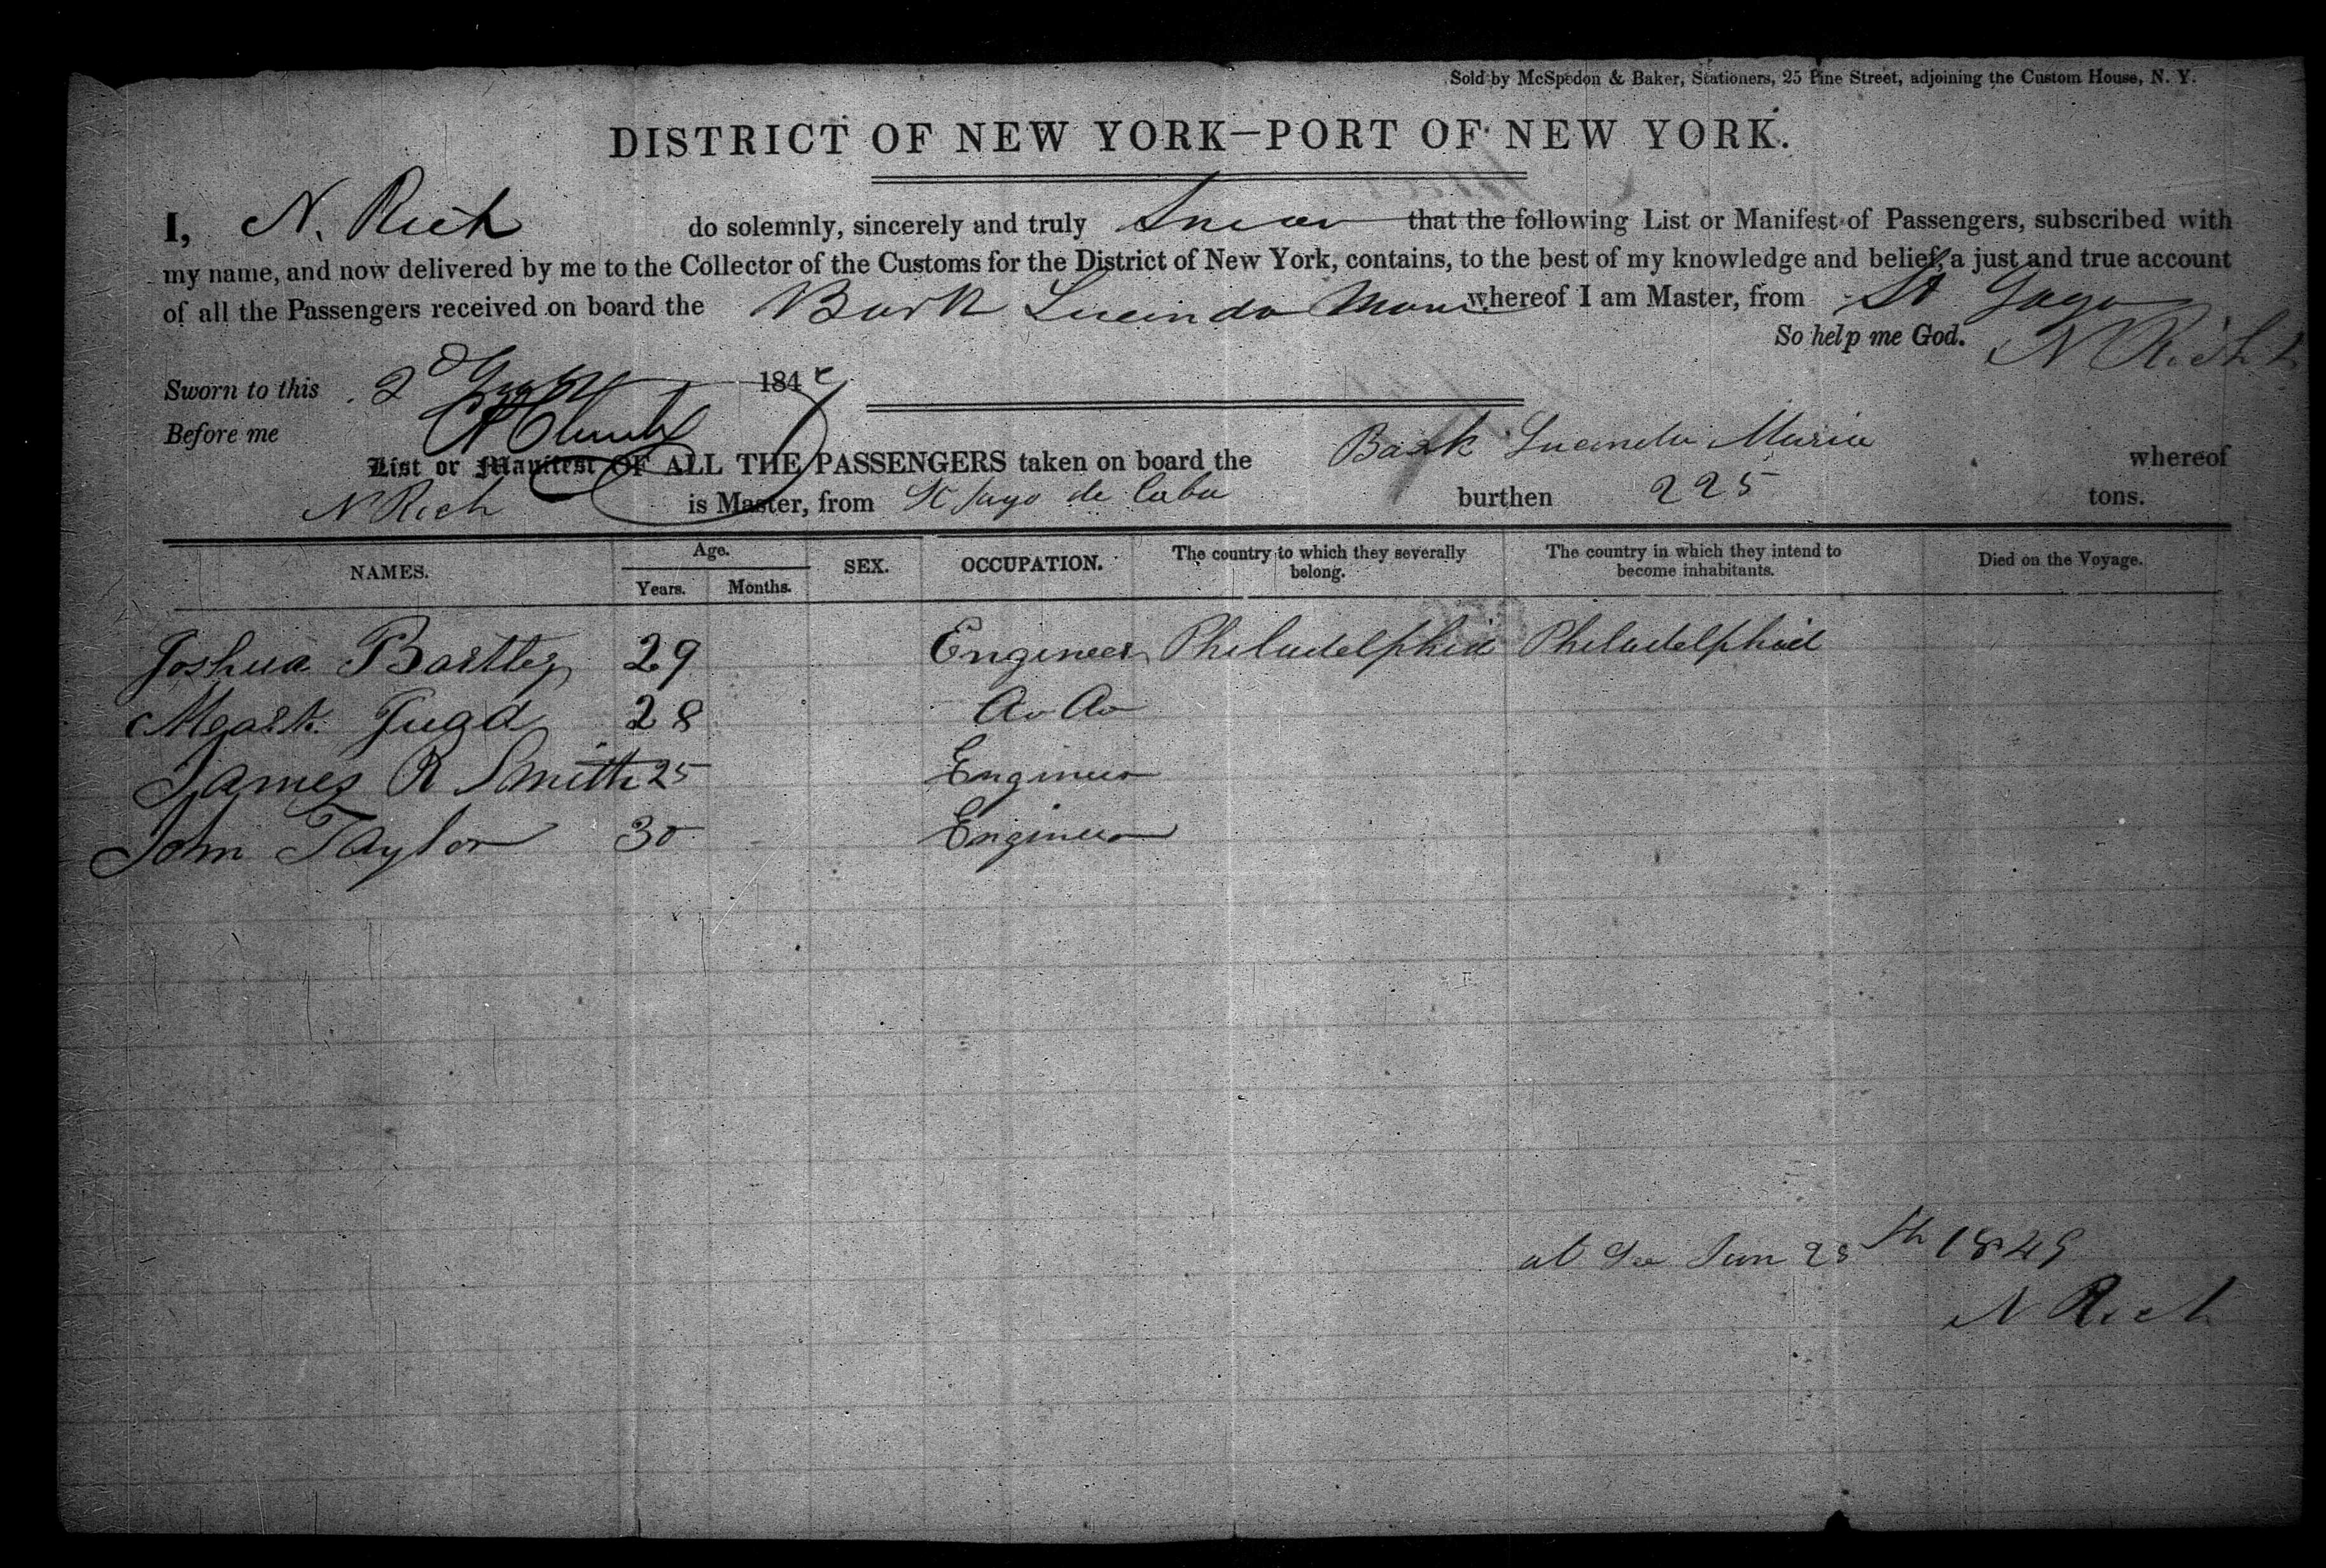 Sold by McSpedon & Baker, Stationers, 25 Pine Street, adjoining the Custom House, N. Y.
DISTRICT OF NEW YORK—PORT OF NEW YORK.
I, N. Rich do solemnly, sincerely and truly Swear that the following List or Manifest of Passengers, subscribed with
my name, and now delivered by me to the Collector of the Customs for the District of New York, contains, to the best of my knowledge and belief, a just and true account
of all the Passengers received on board the Bark Lucinda Maria whereof I am Master, from St Jago
So help me God. N Rich
Sworn to this 2d 184
Before me
List or Manifest OF ALL THE PASSENGERS taken on board the Bark Lucinda Maria whereof
N Rich is Master, from St Jago de Cuba burthen 225 tons.
NAMES. Age. Years. Months. SEX. OCCUPATION. The country to which they severally belong. The country in which they intend to become inhabitants. Died on the Voyage.
Joshua Bartley 29 Engineer Philadelphia Philadelphia
Mark Judd 28 Do Do
James R Smith 25 Engineer
John Taylor 30 Engineer
at Sea Jun 28th 1849
N Rich